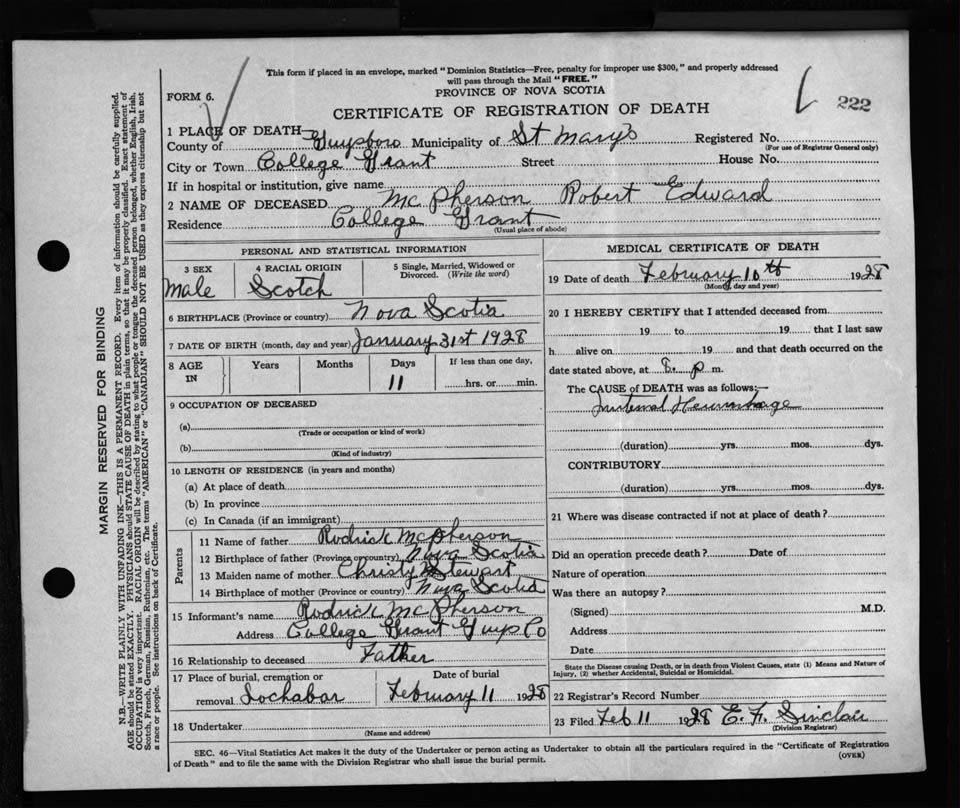 This form if placed in an envelope, marked "Dominion Statistics—Free, penalty for improper use $300," and properly addressed
will pass through the Mail "FREE."
PROVINCE OF NOVA SCOTIA
FORM 6.
CERTIFICATE OF REGISTRATION OF DEATH
222
1 PLACE OF DEATH
County of Guysboro Municipality of St Mary's Registered No.
(For use of Registrar General only)
City or Town College Grant Street House No.
If in hospital or institution, give name
2 NAME OF DECEASED McPherson Robert Edward
Residence College Grant
(Usual place of abode)
PERSONAL AND STATISTICAL INFORMATION
3 SEX 4 RACIAL ORIGIN 5 Single, Married, Widowed or Divorced. (Write the word)
Male Scotch
6 BIRTHPLACE (Province or country) Nova Scotia
7 DATE OF BIRTH (month, day and year) January 31st 1928
8 AGE IN Years Months Days If less than one day,
11 hrs. or min.
9 OCCUPATION OF DECEASED
(a)
(Trade or occupation or kind of work)
(b)
(Kind of industry)
10 LENGTH OF RESIDENCE (in years and months)
(a) At place of death
(b) In province
(c) In Canada (if an immigrant)
Parents
11 Name of father Rodrick McPherson
12 Birthplace of father (Province or country) Nova Scotia
13 Maiden name of mother Christy Stewart
14 Birthplace of mother (Province or country) Nova Scotia
15 Informant's name Rodrick McPherson
Address College Grant Guys Co
16 Relationship to deceased Father
17 Place of burial, cremation or removal Lochabar
Date of burial
February 11 1928
18 Undertaker
(Name and address)
MEDICAL CERTIFICATE OF DEATH
19 Date of death February 10th 1928
(Month, day and year)
20 I HEREBY CERTIFY that I attended deceased from
19 to 19 that I last saw
h alive on 19 and that death occurred on the
date stated above, at 8. p m.
The CAUSE of DEATH was as follows:—
Internal Hemorrhage
(duration) yrs. mos. dys.
CONTRIBUTORY
(duration) yrs. mos. dys.
21 Where was disease contracted if not at place of death?
Did an operation precede death? Date of
Nature of operation
Was there an autopsy?
(Signed) M.D.
Address
Date
State the Disease causing Death, or in death from Violent Causes, state (1) Means and Nature of
Injury, (2) whether Accidental, Suicidal or Homicidal.
22 Registrar's Record Number
23 Filed Feb 11 1928 Sinclair
(Division Registrar)
SEC. 46—Vital Statistics Act makes it the duty of the Undertaker or person acting as Undertaker to obtain all the particulars required in the "Certificate of Registration
of Death" and to file the same with the Division Registrar who shall issue the burial permit.
(OVER)
MARGIN RESERVED FOR BINDING
N.B.—WRITE PLAINLY WITH UNFADING INK—THIS IS A PERMANENT RECORD. Every item of information should be carefully supplied.
AGE should be stated EXACTLY. PHYSICIANS should STATE CAUSE OF DEATH in plain terms, so that it may be properly classified. Exact statement of
OCCUPATION is very important. RACIAL ORIGIN will be described by stating to what people or tongue the deceased person belonged, whether English, Irish,
Scotch, French, German, Russian, Ruthenian, etc. The terms "AMERICAN" or "CANADIAN" SHOULD NOT BE USED as they express citizenship but not
a race or people. See instructions on back of Certificate.